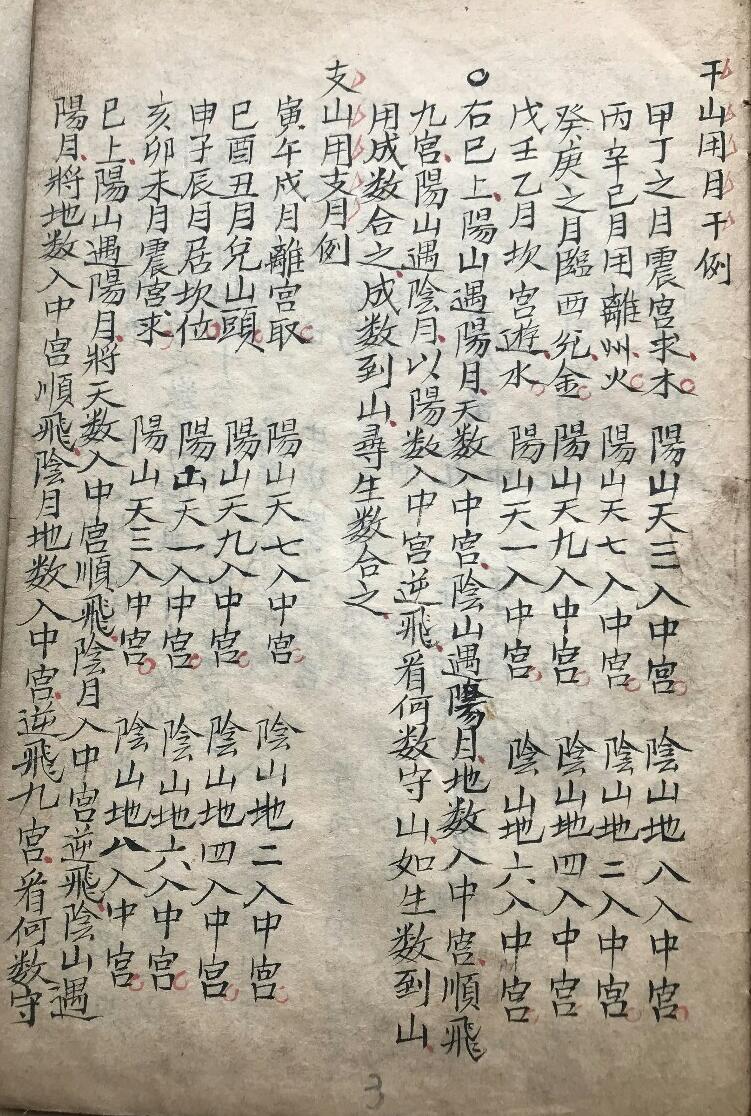 干山用月干例
甲丁之月震宮求木 陽山天三入中宮 陰山地八入中宮
丙辛己月用離州火 陽山天七入中宮 陰山地二入中宮
癸庚之月臨西兌金 陽山天九入中宮 陰山地四入中宮
戊壬乙月坎宮遊水 陽山天一入中宮 陰山地六入中宮
○右巳上陽山遇陽月天数入中宮陰山遇陽月地数入中宮順飛
九宮陽山遇陰月以陽数入中宮逆飛看何数守山如生数到山
用成数合之成数到山尋生数合之
支山用支月例
寅午戌月離宮取 陽山天七入中宮 陰山地二入中宮
巳酉丑月兌山頭 陽山天九入中宮 陰山地四入中宮
申子辰月居坎位 陽山天一入中宮 陰山地六入中宮
亥卯未月震宮求 陽山天三入中宮 陰山地八入中宮
巳上陽山遇陽月將天数入中宮順飛陰月入中宮逆飛陰山遇
陽月將地数入中宮順飛陰月地数入中宮逆飛九宮看何数守
3